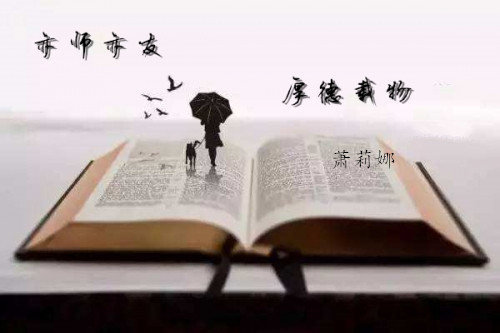 亦师亦友
厚德载物
萧莉娜